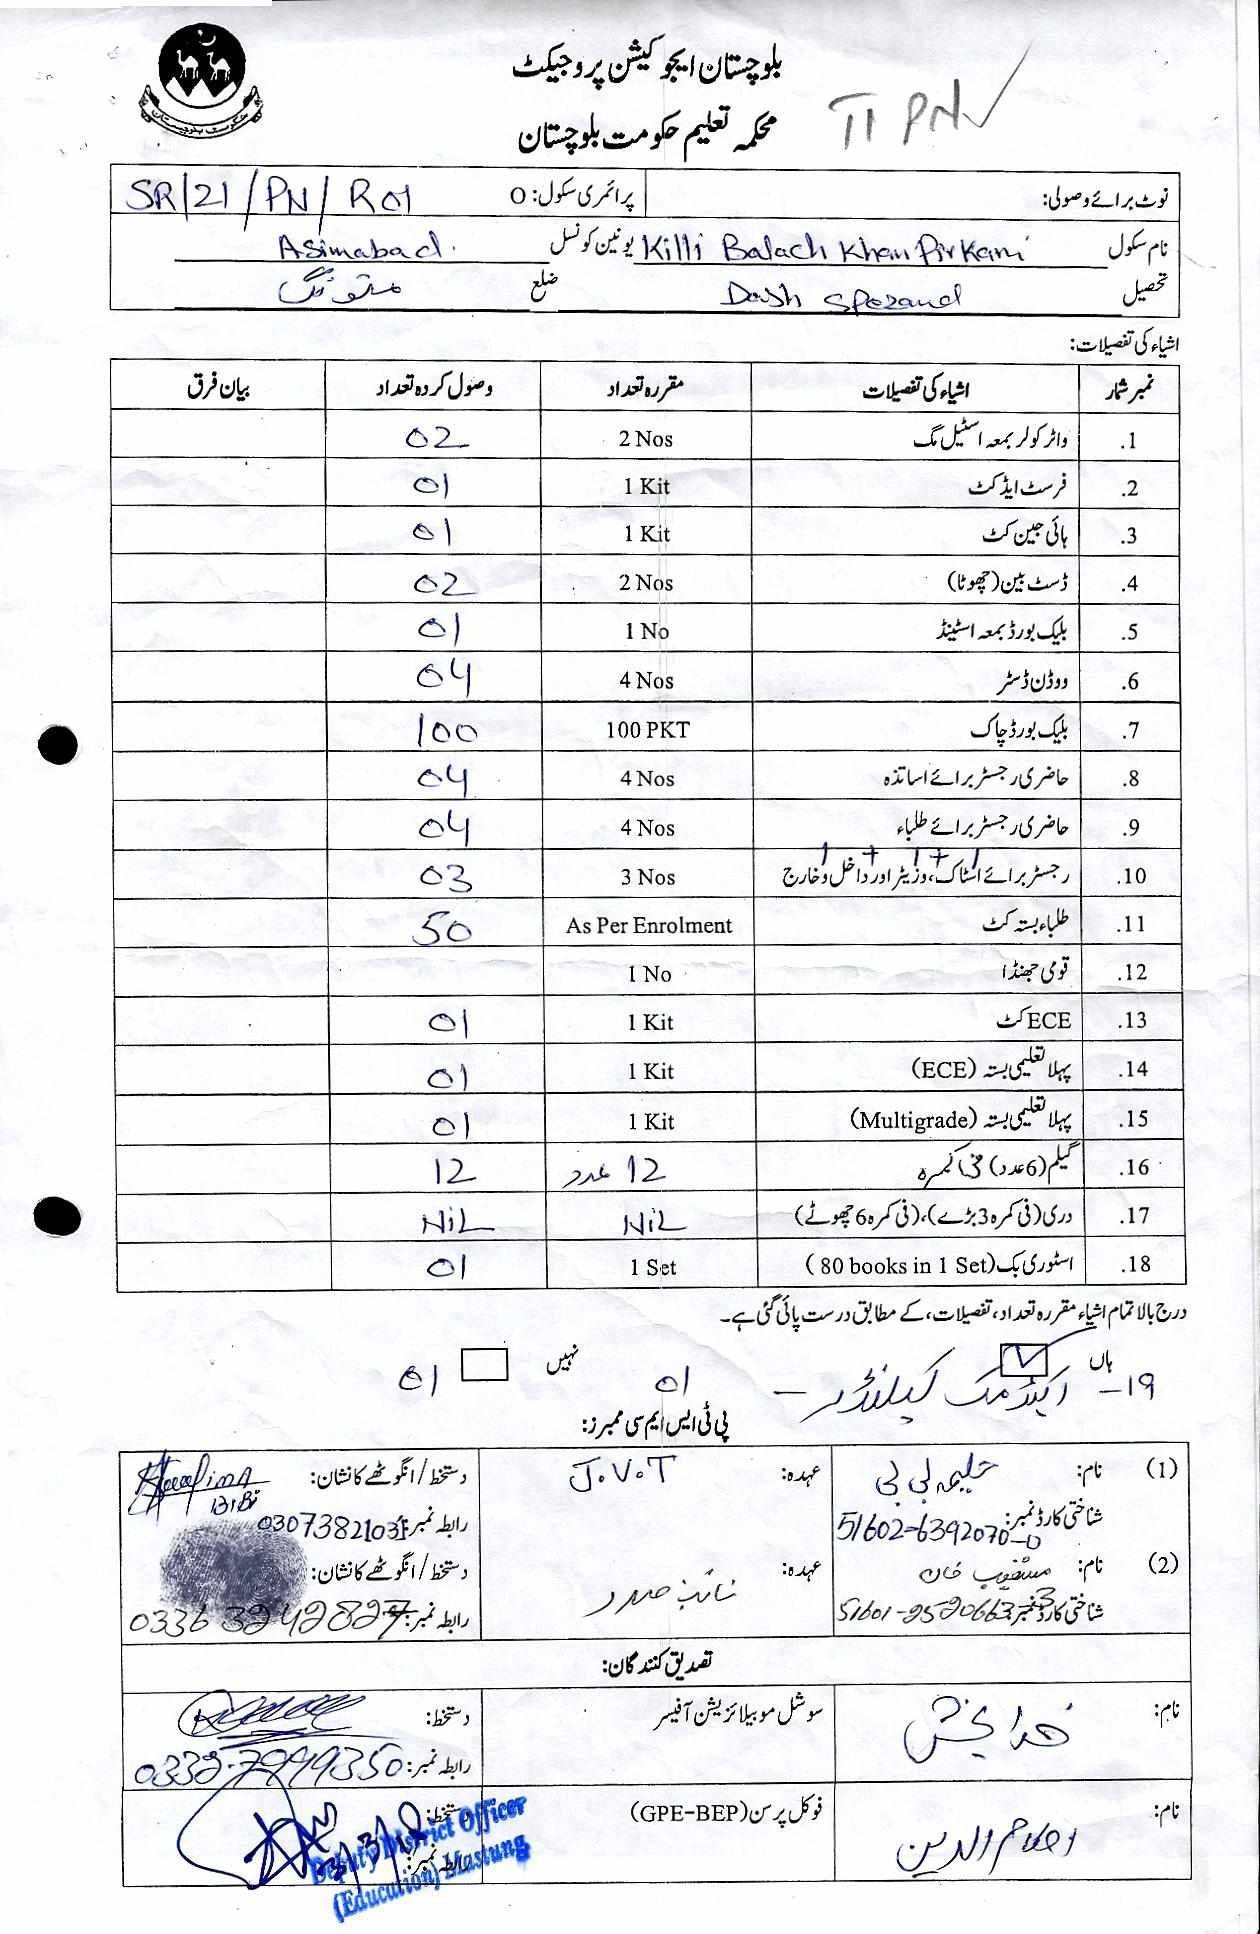 حکومت بلوچستان
بلوچستان ایجوکیشن پروجیکٹ
محکمہ تعلیم حکومت بلوچستان
TI PN
نوٹ برائے وصولی: پرائمری سکول: O SR/21/PN/R01
نام سکول Killi Balach Khan Pirkani یونین کونسل Asimabad.
تحصیل Dash Spezand ضلع مستونگ
اشیاء کی تفصیلات:
نمبر شمار اشیاء کی تفصیلات مقررہ تعداد وصول کردہ تعداد بیان فرق
.1 واٹر کولر بمعہ اسٹیل مگ 2 Nos 02
.2 فرسٹ ایڈ کٹ 1 Kit 01
.3 ہائی جین کٹ 1 Kit 01
.4 ڈسٹ بین (چھوٹا) 2 Nos 02
.5 بلیک بورڈ بمعہ اسٹینڈ 1 No 01
.6 ووڈن ڈسٹر 4 Nos 04
.7 بلیک بورڈ چاک 100 PKT 100
.8 حاضری رجسٹر برائے اساتذہ 4 Nos 04
.9 حاضری رجسٹر برائے طلباء 4 Nos 04
1 + 1 + 1
.10 رجسٹر برائے اسٹاک، وزیٹر اور داخل و خارج 3 Nos 03
.11 طلباء بستہ کٹ As Per Enrolment 50
.12 قومی جھنڈا 1 No
.13 ECE کٹ 1 Kit 01
.14 پہلا تعلیمی بستہ (ECE) 1 Kit 01
.15 پہلا تعلیمی بستہ (Multigrade) 1 Kit 01
.16 گیلم (6 عدد) فی کمرہ 12 عدد 12
.17 دری (فی کمرہ 3 بڑے)، (فی کمرہ 6 چھوٹے) NiL NiL
.18 اسٹوری بک (80 books in 1 Set) 1 Set 01
درج بالا تمام اشیاء مقررہ تعداد، تفصیلات، کے مطابق درست پائی گئی ہے۔
ہاں ✓ نہیں
۱۹- اکیڈمک کیلنڈر - 01 01
پی ٹی ایس ایم سی ممبرز:
(1) نام: حلیمہ بی بی عہدہ: J.V.T دستخط / انگوٹھے کا نشان: Haalima BiBi
شناختی کارڈ نمبر: 51602-6392070-0 رابطہ نمبر: 03073821031
(2) نام: خان عہدہ: نائب صدر دستخط / انگوٹھے کا نشان:
شناختی کارڈ نمبر: 51601-2520663-3 رابطہ نمبر: 0336 3242827
تصدیق کنندگان:
نام: خدا بخش سوشل موبیلائزیشن آفیسر دستخط:
رابطہ نمبر: 0332-7999350
نام: فوکل پرسن (GPE-BEP) دستخط:
رابطہ نمبر:
Deputy District Officer
(Education) Mastung